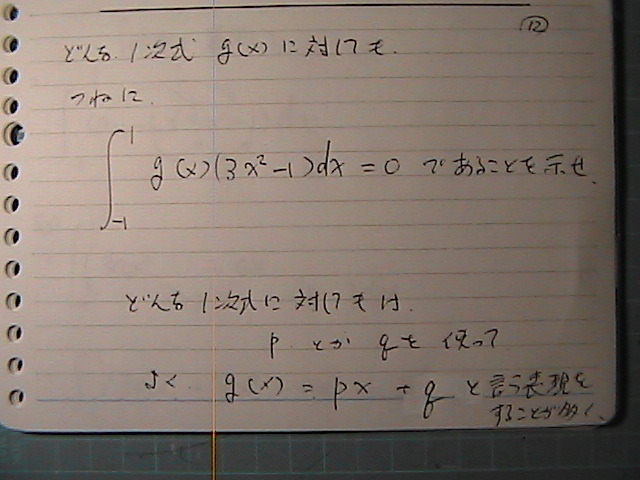 ⑫
どんな1次式 g(x) に対しても.
つねに.
∫_{-1}^{1} g(x)(3x²-1)dx = 0 であることを示せ.
どんな1次式に対しても は.
p とか qを 使って
よく g(x) = px + q と言う表現を
することが多く、